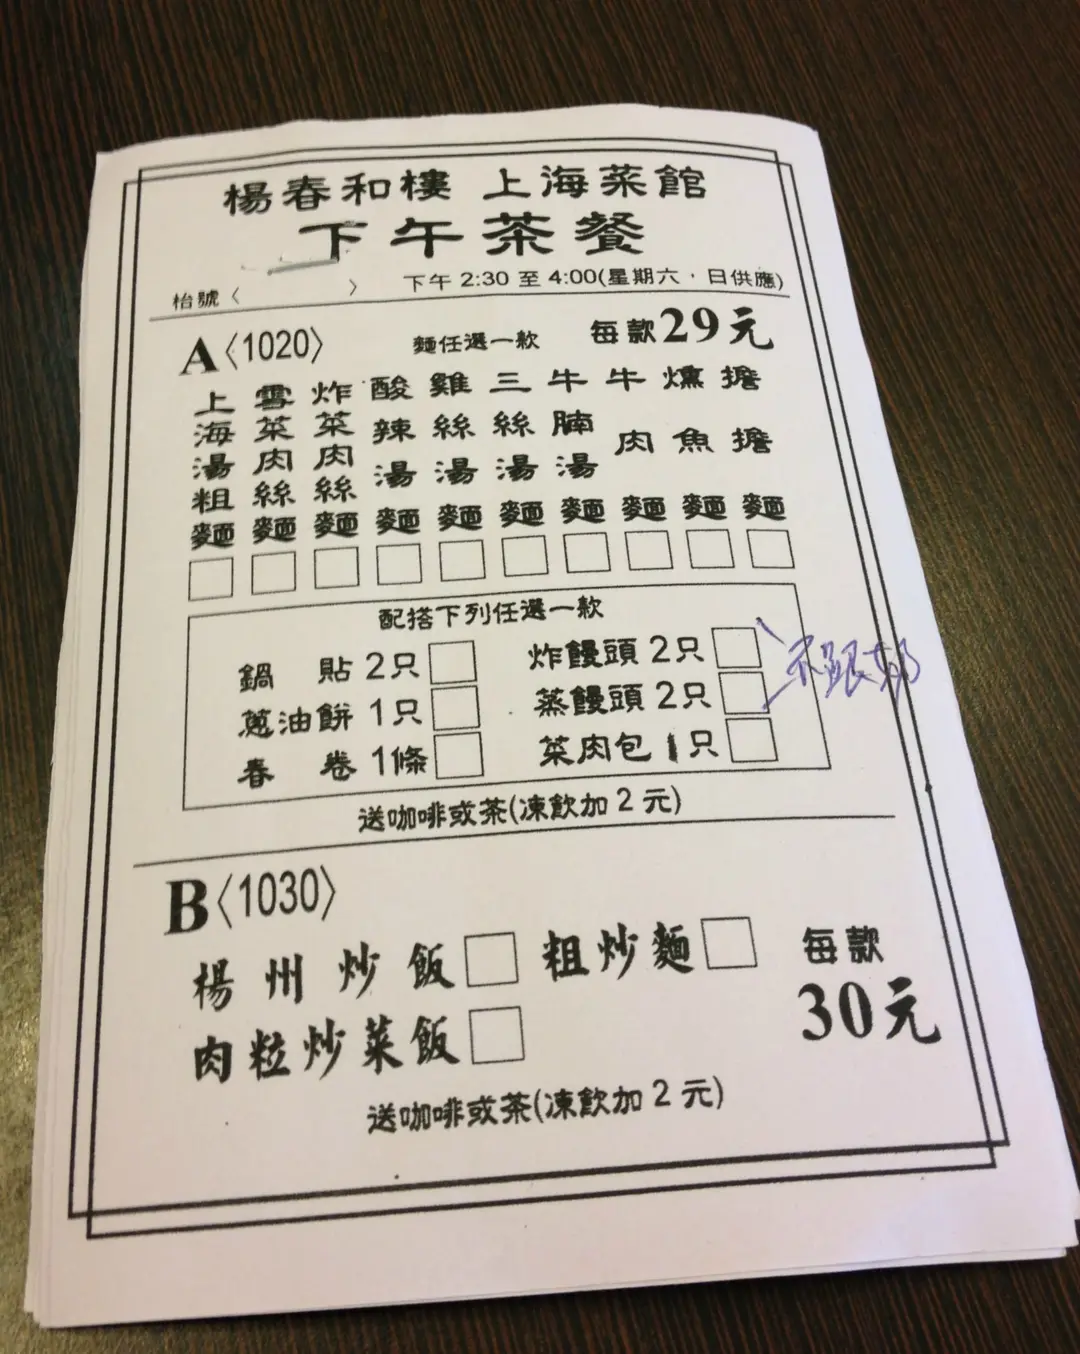 楊春和樓 上海菜館
下午茶餐
枱號〈 〉 下午 2:30 至 4:00(星期六,日供應)
A〈1020〉 麵任選一款 每款29元
上海湯粗麵
雪菜肉絲麵
炸菜肉絲麵
酸辣湯麵
雞絲湯麵
三絲湯麵
牛腩湯麵
牛肉麵
燻魚麵
擔擔麵
配搭下列任選一款
鍋貼 2只 炸饅頭 2只
蔥油餅 1只 蒸饅頭 2只
春卷 1條 菜肉包 1只
送咖啡或茶(凍飲加 2 元)
B〈1030〉
楊州炒飯 粗炒麵 每款
肉粒炒菜飯 30元
送咖啡或茶(凍飲加 2 元)